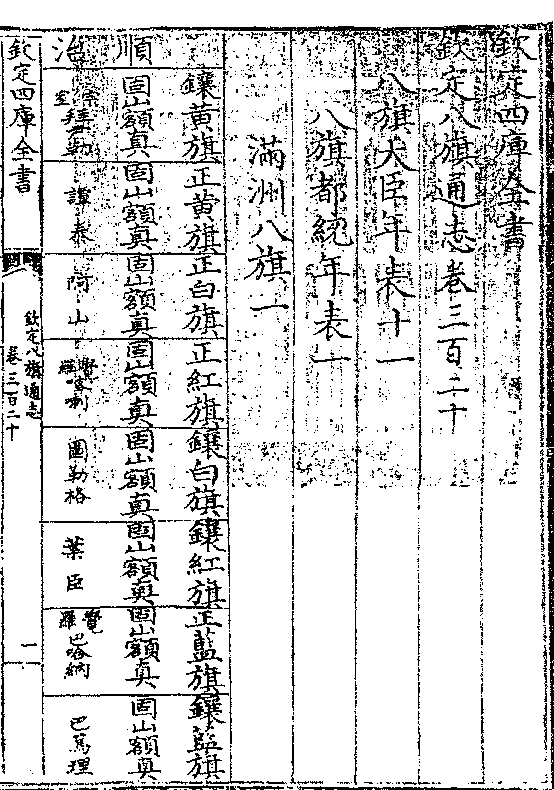 欽定四庫全書
欽定八旗通志卷三百二十
八旗大臣年表十一
八旗都統年表一
滿洲八旗一
鑲黃旗 正黃旗 正白旗 正紅旗 鑲白旗 鑲紅旗 正藍旗 鑲藍旗
固山額真 固山額真 固山額真 固山額真 固山額真 固山額真 固山額真 固山額真
順治
宗室拜勒 譚泰 阿山 覺羅喀喇 圖勒格 葉臣 覺羅巴哈納 巴篤理
欽定四庫全書
欽定八旗通志
卷三百二十
一